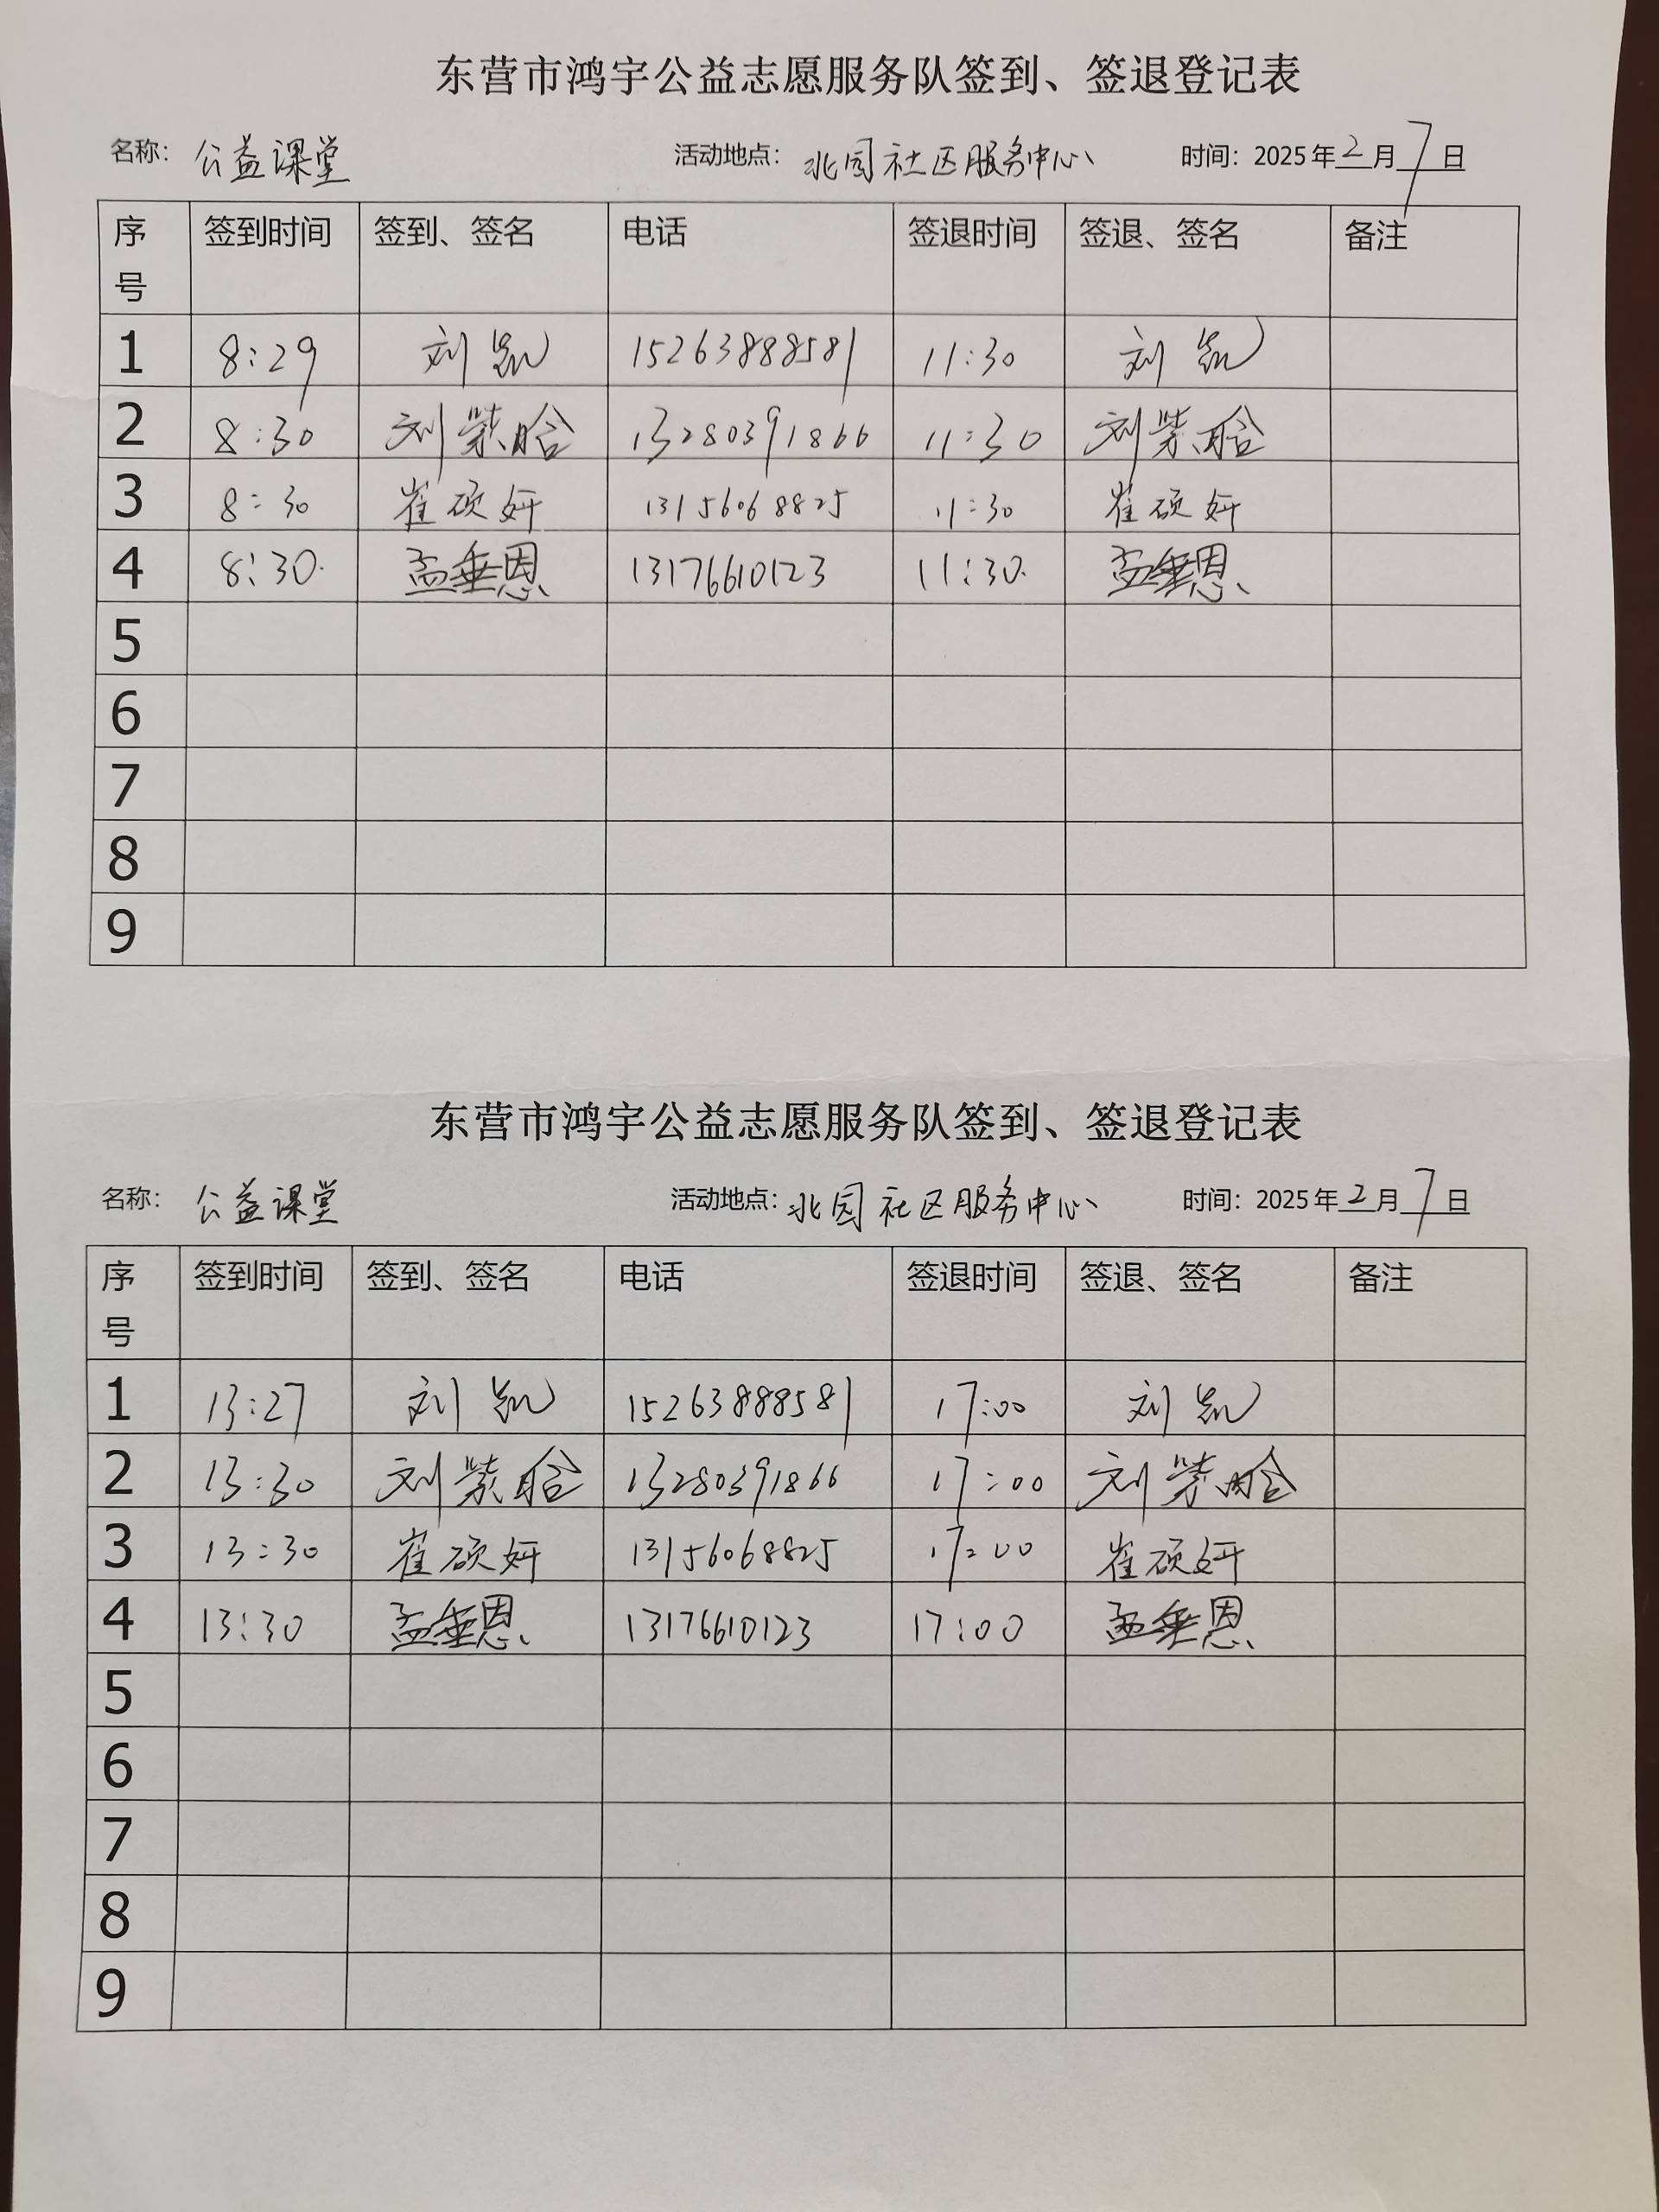 东营市鸿宇公益志愿服务队签到、签退登记表
名称： 公益课堂 活动地点： 北园社区服务中心 时间：2025年2月7日
序号 签到时间 签到、签名 电话 签退时间 签退、签名 备注
1 8:29 刘凯 15263888581 11:30 刘凯
2 8:30 刘紫晗 13280391866 11:30 刘紫晗
3 8:30 崔硕妍 13156068825 11:30 崔硕妍
4 8:30. 孟垂恩 13176610123 11:30. 孟垂恩
5
6
7
8
9
东营市鸿宇公益志愿服务队签到、签退登记表
名称： 公益课堂 活动地点： 北园社区服务中心 时间：2025年2月7日
序号 签到时间 签到、签名 电话 签退时间 签退、签名 备注
1 13:27 刘凯 15263888581 17:00 刘凯
2 13:30 刘紫晗 13280391866 17:00 刘紫晗
3 13:30 崔硕妍 13156068825 17:00 崔硕妍
4 13:30 孟垂恩 13176610123 17:00 孟垂恩
5
6
7
8
9